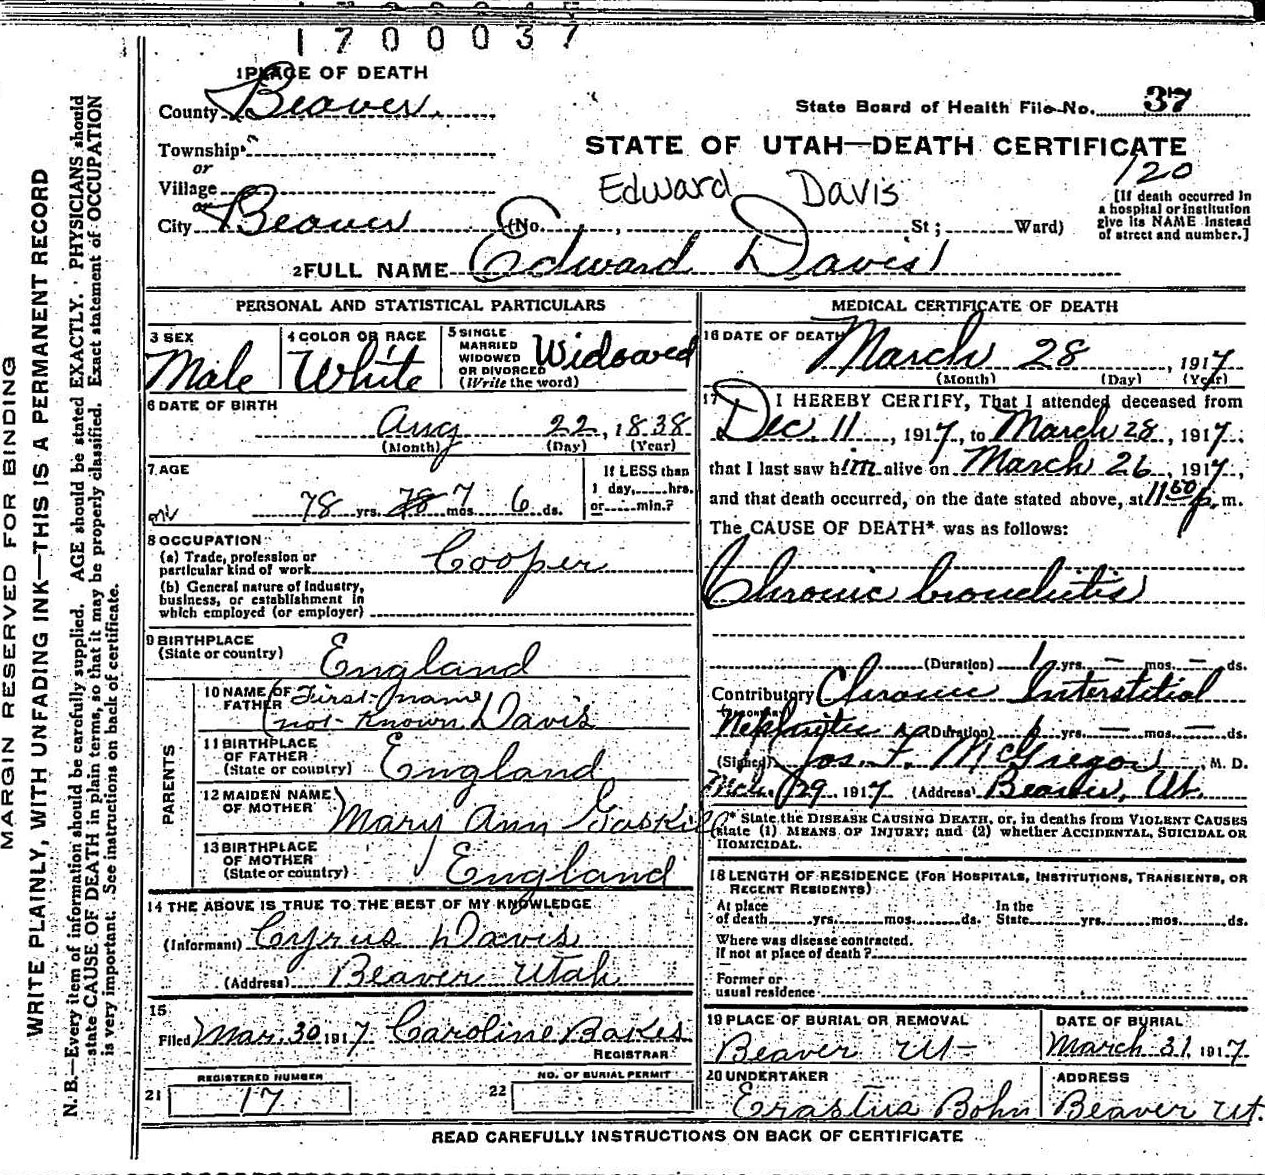 1700037
1 PLACE OF DEATH
County Beaver
State Board of Health File No. 37
Township
or
Village
or
City Beaver (No. , St; Ward)
STATE OF UTAH—DEATH CERTIFICATE
120
Edward Davis
[If death occurred in
a hospital or institution
give its NAME instead
of street and number.]
2 FULL NAME Edward Davis
PERSONAL AND STATISTICAL PARTICULARS
3 SEX Male
4 COLOR OR RACE White
5 SINGLE
MARRIED
WIDOWED
OR DIVORCED
(Write the word)
Widowed
6 DATE OF BIRTH
Aug 22, 1838
(Month) (Day) (Year)
7 AGE
78 yrs. 78 7 mos. 6 ds.
If LESS than
1 day, hrs.
or min.?
8 OCCUPATION
(a) Trade, profession or
particular kind of work Cooper
(b) General nature of industry,
business, or establishment in
which employed (or employer)
9 BIRTHPLACE
(State or country) England
PARENTS
10 NAME OF
FATHER (First name
not known) Davis
11 BIRTHPLACE
OF FATHER
(State or country) England
12 MAIDEN NAME
OF MOTHER Mary Ann Gaskill
13 BIRTHPLACE
OF MOTHER
(State or country) England
14 THE ABOVE IS TRUE TO THE BEST OF MY KNOWLEDGE
(Informant) Cyrus Davis
(Address) Beaver Utah
15
Filed Mar. 30 1917 Caroline Bakes
REGISTRAR
21 REGISTERED NUMBER 17
22 NO. OF BURIAL PERMIT
MEDICAL CERTIFICATE OF DEATH
16 DATE OF DEATH
March 28, 1917
(Month) (Day) (Year)
17 I HEREBY CERTIFY, That I attended deceased from
Dec. 11, 1917, to March 28, 1917,
that I last saw him alive on March 26, 1917,
and that death occurred, on the date stated above, at 11 50 p. m.
The CAUSE OF DEATH* was as follows:
Chronic bronchitis
(Duration) 1 yrs. — mos. — ds.
Contributory Chronic Interstitial
Nephritis (Duration) yrs. — mos. — ds.
(Signed) Jos. F. McGregor, M. D.
Mch. 29 1917 (Address) Beaver, Ut.
* State the DISEASE CAUSING DEATH, or, in deaths from VIOLENT CAUSES
state (1) MEANS OF INJURY; and (2) whether ACCIDENTAL, SUICIDAL OR
HOMICIDAL.
18 LENGTH OF RESIDENCE (FOR HOSPITALS, INSTITUTIONS, TRANSIENTS, OR
RECENT RESIDENTS)
At place
of death yrs. mos. ds.
In the
State yrs. mos. ds.
Where was disease contracted.
If not at place of death?
Former or
usual residence
19 PLACE OF BURIAL OR REMOVAL
Beaver Ut
DATE OF BURIAL
March 31 1917
20 UNDERTAKER
Erastus Bohn
ADDRESS
Beaver Ut.
READ CAREFULLY INSTRUCTIONS ON BACK OF CERTIFICATE
MARGIN RESERVED FOR BINDING
WRITE PLAINLY, WITH UNFADING INK—THIS IS A PERMANENT RECORD
N. B.—Every item of information should be carefully supplied. AGE should be stated EXACTLY. PHYSICIANS should
state CAUSE OF DEATH in plain terms, so that it may be properly classified. Exact statement of OCCUPATION
is very important. See instructions on back of certificate.